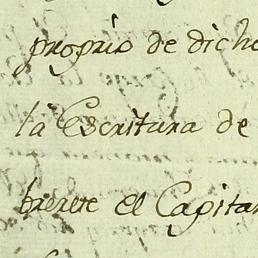 proprio de dicho
la Escritura de
el Capitan